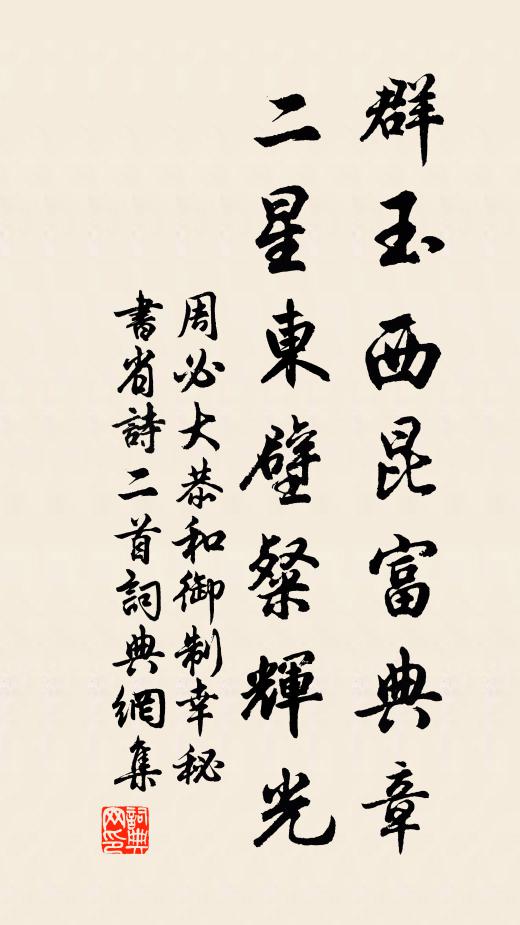 群玉西昆富典章
二星東壁粲輝光
周必大恭和御制幸秘
書省詩二首詞典網集
詞典
网印